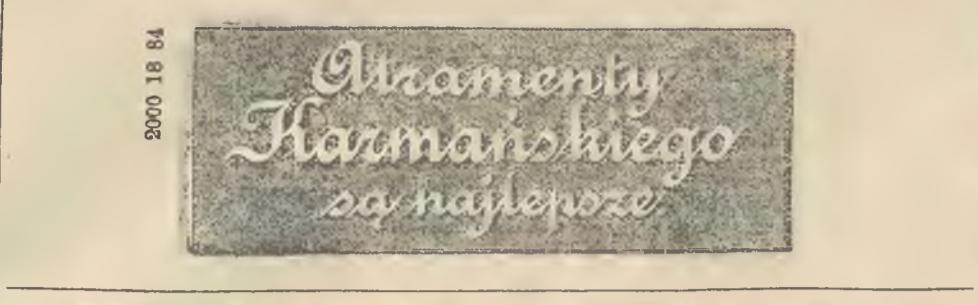 2000 18 84
Atramenty
Karmańskiego
są najlepsze